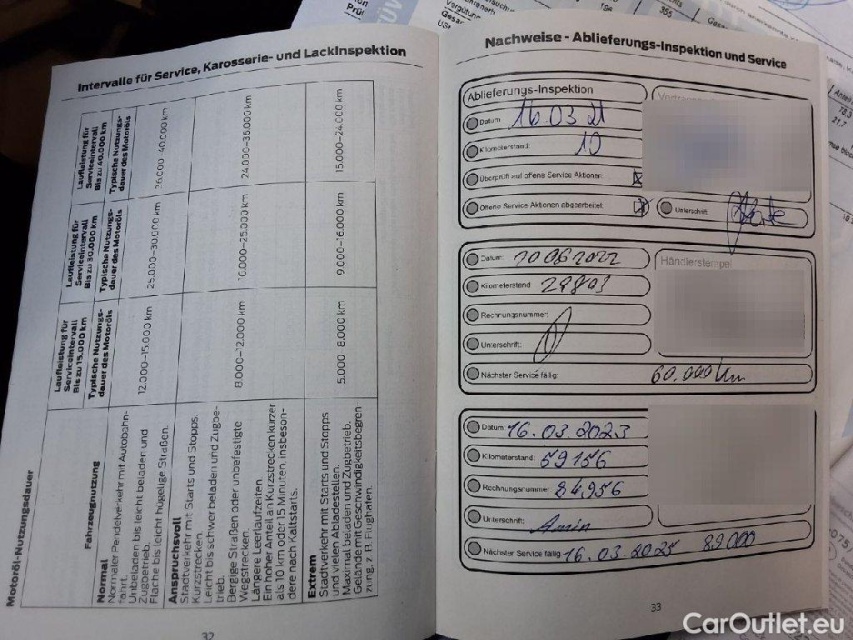 Intervalle für Service, Karosserie- und Lackinspektion
Motoröl-Nutzungsdauer
Fahrzeugnutzung
Laufleistung für
Serviceintervall
Bis zu 15.000 km
Typische Nutzungs-
dauer des Motoröls
Laufleistung für
Serviceintervall
Bis zu 30.000 km
Typische Nutzungs-
dauer des Motoröls
Laufleistung für
Serviceintervall
Bis zu 40.000 km
Typische Nutzungs-
dauer des Motoröls
Normal
Normaler Pendelverkehr mit Autobahn-
fahrt.
Unbeladen bis leicht beladen und
Zugbetrieb.
Flache bis leicht hügelige Straßen.
12.000–15.000 km
25.000–30.000 km
Anspruchsvoll
Stadtverkehr mit Starts und Stopps.
Kurzstrecken.
Leicht bis schwer beladen und Zugbe-
trieb.
Bergige Straßen oder unbefestigte
Wegstrecken.
Längere Leerlaufzeiten.
Ein hoher Anteil an Kurzstrecken kürzer
als 10 km oder 15 Minuten, insbeson-
dere nach Kaltstarts.
8.000–12.000 km
16.000–25.000 km
24.000–35.000 km
Extrem
Stadtverkehr mit Starts und Stopps
und vielen Abladestellen.
Maximal beladen und Zugbetrieb.
Gelände mit Geschwindigkeitsbegren
zung, z. B. Flughäfen.
5.000–8.000 km
9.000–16.000 km
15.000–24.000 km
32
Nachweise - Ablieferungs-Inspektion und Service
Ablieferungs-Inspektion
Datum 16.03.21
Kilometerstand: 10
Überprüft auf offene Service Aktionen:
Offene Service Aktionen abgearbeitet:
Unterschrift:
Datum:
Händlerstempel
Kilometerstand
Rechnungsnummer:
Unterschrift:
Nächster Service fällig: 60.000 km
Datum 16.03.2023
Kilometerstand: 59156
Rechnungsnummer: 84956
Unterschrift: Amin
Nächster Service fällig: 16.03.2025 89000
33
CarOutlet.eu